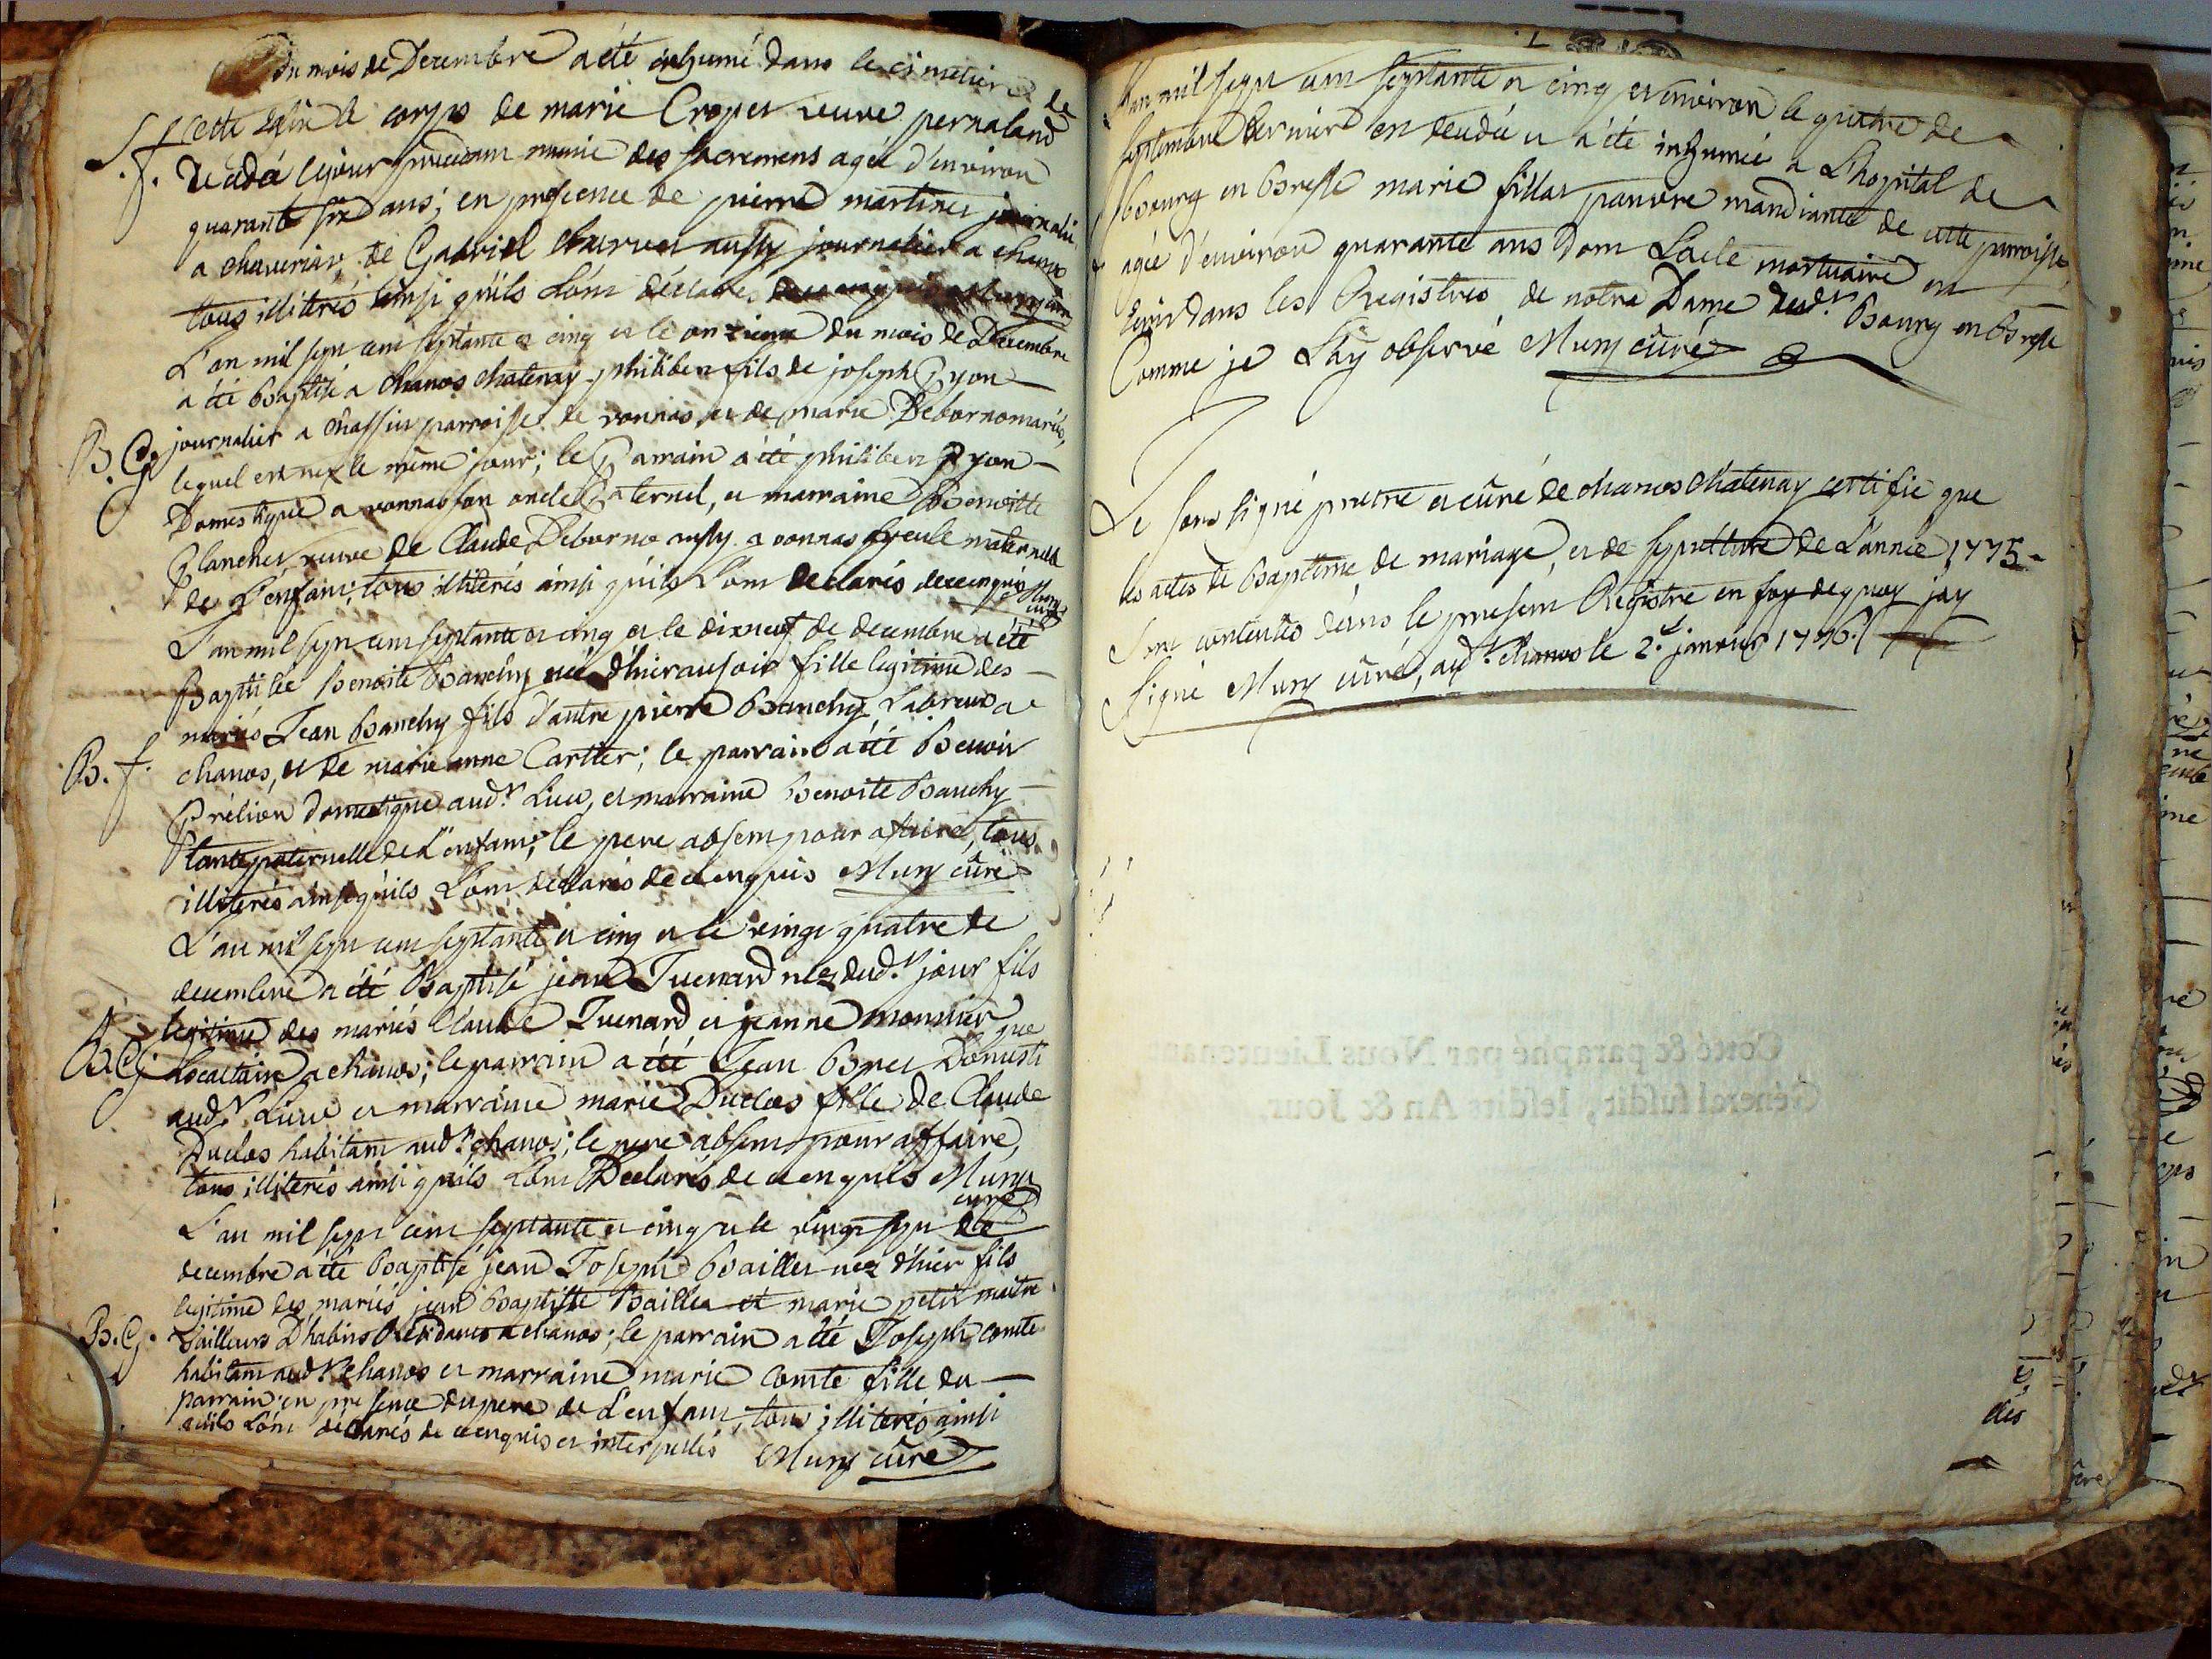 du mois de Decembre a été inhumé dans le cimetiere de
S. f. cette Eglise le corps de marie Croper veuve pernaland
decedée le jour precedant munie des sacremens agée d'environ
quarante six ans; en presence de pierre martiner journalier
a chaveriar, de Gabriel aussy journalier a chanos
tous illiterés ainsi qu'ils L'ont déclaré,
L'an mil sept cent septante et cinq et le onzieme du mois de Decembre
a été baptisé a chanos chatenay philibert fils de joseph Pyon
B. G. journalier a chassin parroisse de vonnas, et de marie Debornomariés,
lequel est nez le même jour; le Parrain a été philibert Pyon
Domestique a vonnas son oncle Paternel, et marraine Benoitte
Planches veuve de Claude Deborno aussy a vonnas ayeule maternelle
de L'enfant, tous illiterés ainsi qu'ils L'ont declarés de ce enquis Mury
curé
L'an mil sept cent septante et cinq et le dixneuf de decembre a été
Baptisée Benoite Banchy née d'hier au soir fille legitime des
mariés Jean Banchy fils d'autre pierre Banchy Labreur a
B. f. chanos, et de marie anne Cartier; le parrain a été Benoit
Prélion domestique aud.t Lieu, et marraine Benoite Banchy
tante paternelle de L'enfant; le pere absent pour afaire, tous
illiterés ainsi qu'ils L'ont declarés de ce enquis Mury curé
L'an mil sept cent septante et cinq et le vingt quatre de
decembre a été Baptisé jean Tuenard nez dud.t jour fils
legitime des mariés Claude Tuenard et jeanne monnier
que
B. G. Locataire a chanos; le parrain a été Jean Bret Domesti
aud.t Lieu et marraine marie Duclos fille de Claude
Duclos habitant aud.t chanos; le pere absent pour affaire,
tous illiterés ainsi qu'ils L'ont Declarés de ce enquis Mury
curé
L'an mil sept cent septante et cinq et le vingt sept de
decembre a été Baptisé jean Joseph Baillet nez d'hier fils
legitime des mariés jean Baptiste Baillet et marie petit maitre
B. G. tailleurs D'habits Residants a chanos; le parrain a été Joseph comte
habitant aud.t chanos et marraine marie comte fille du
parrain en presence du pere de L'enfant, tous illiterés ainsi
qu'ils L'ont déclarés de ce enquis et interpellés Mury curé
L'an mil sept cent septante et cinq et environ le quatre de
septembre dernier est decedée et a été inhumée a L'hopital de
bourg en Bresse marie fillat pauvre mandiante de cette parroisse
agée d'environ quarante ans Dont L'acte mortuaire est
écrit dans les Registres de notre Dame dud.t Bourg en Bresse
Comme je L'ay observé Mury curé
Je sous signé pretre et curé de chanos chatenay certifie que
les actes de Baptême, de mariage, et de sepulture de L'année 1775
sont contenus dans le present Registre en foy de quoy jay
signé Mury curé, aud.t chanos le 2.e janvier 1776.
Cotté & paraphé par Nous Lieutenant
Général susdit, lesdits An & Jour.
des